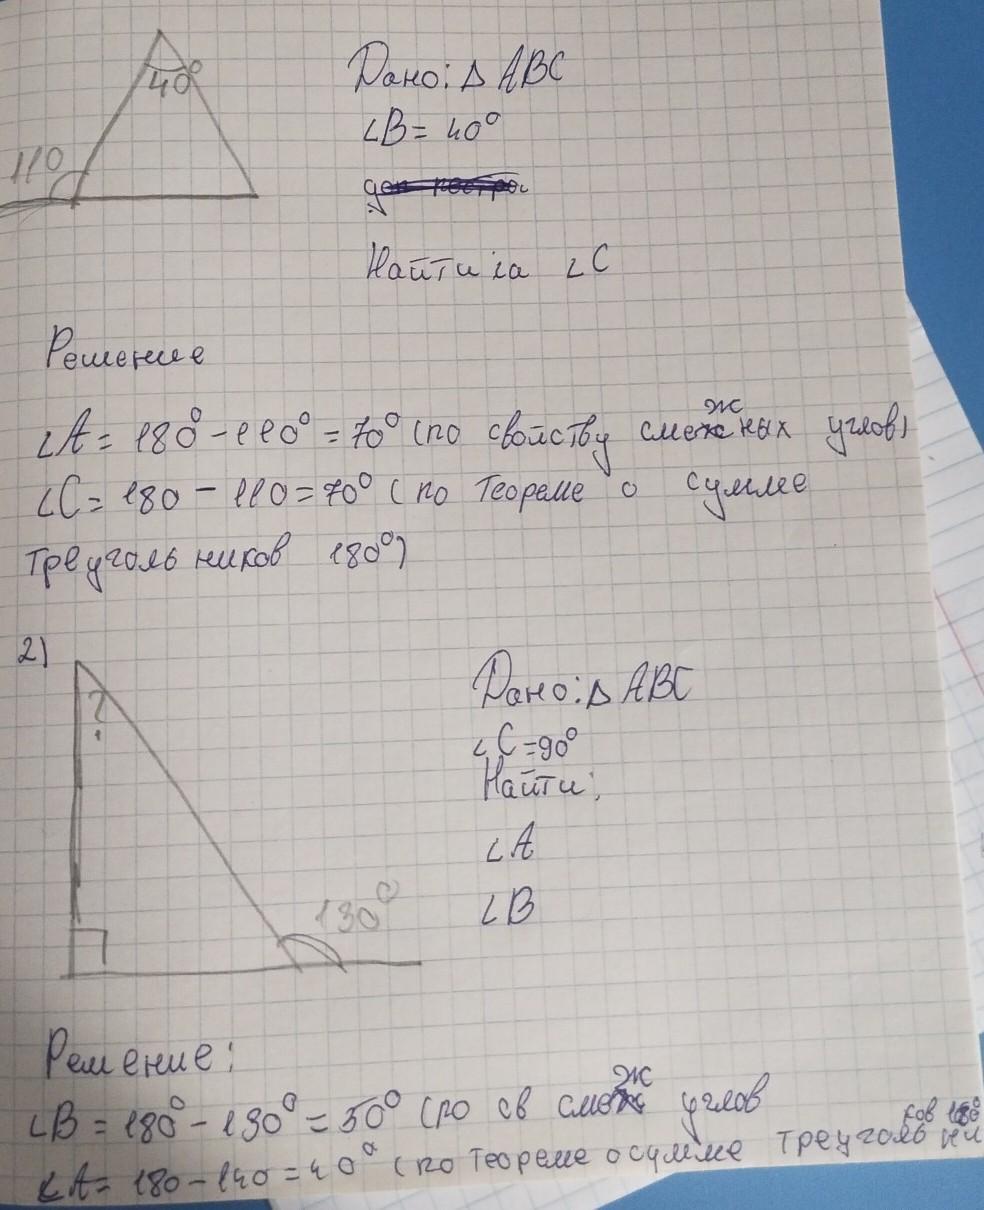 40°
110
Дано: Δ ABC
∠B = 40°
Найти ∠C
Решение
∠A = 180° - 110° = 70° (по свойству смежных углов)
ж
∠C = 180 - 110 = 70° (по теореме о сумме
треугольников 180°)
2)
?
130°
Дано: Δ ABC
∠C = 90°
Найти:
∠A
∠B
Решение:
∠B = 180° - 130° = 50° (по св смеж углов
ж
∠A = 180 - 140 = 40° (по теореме о сумме треугольни
ков 180°